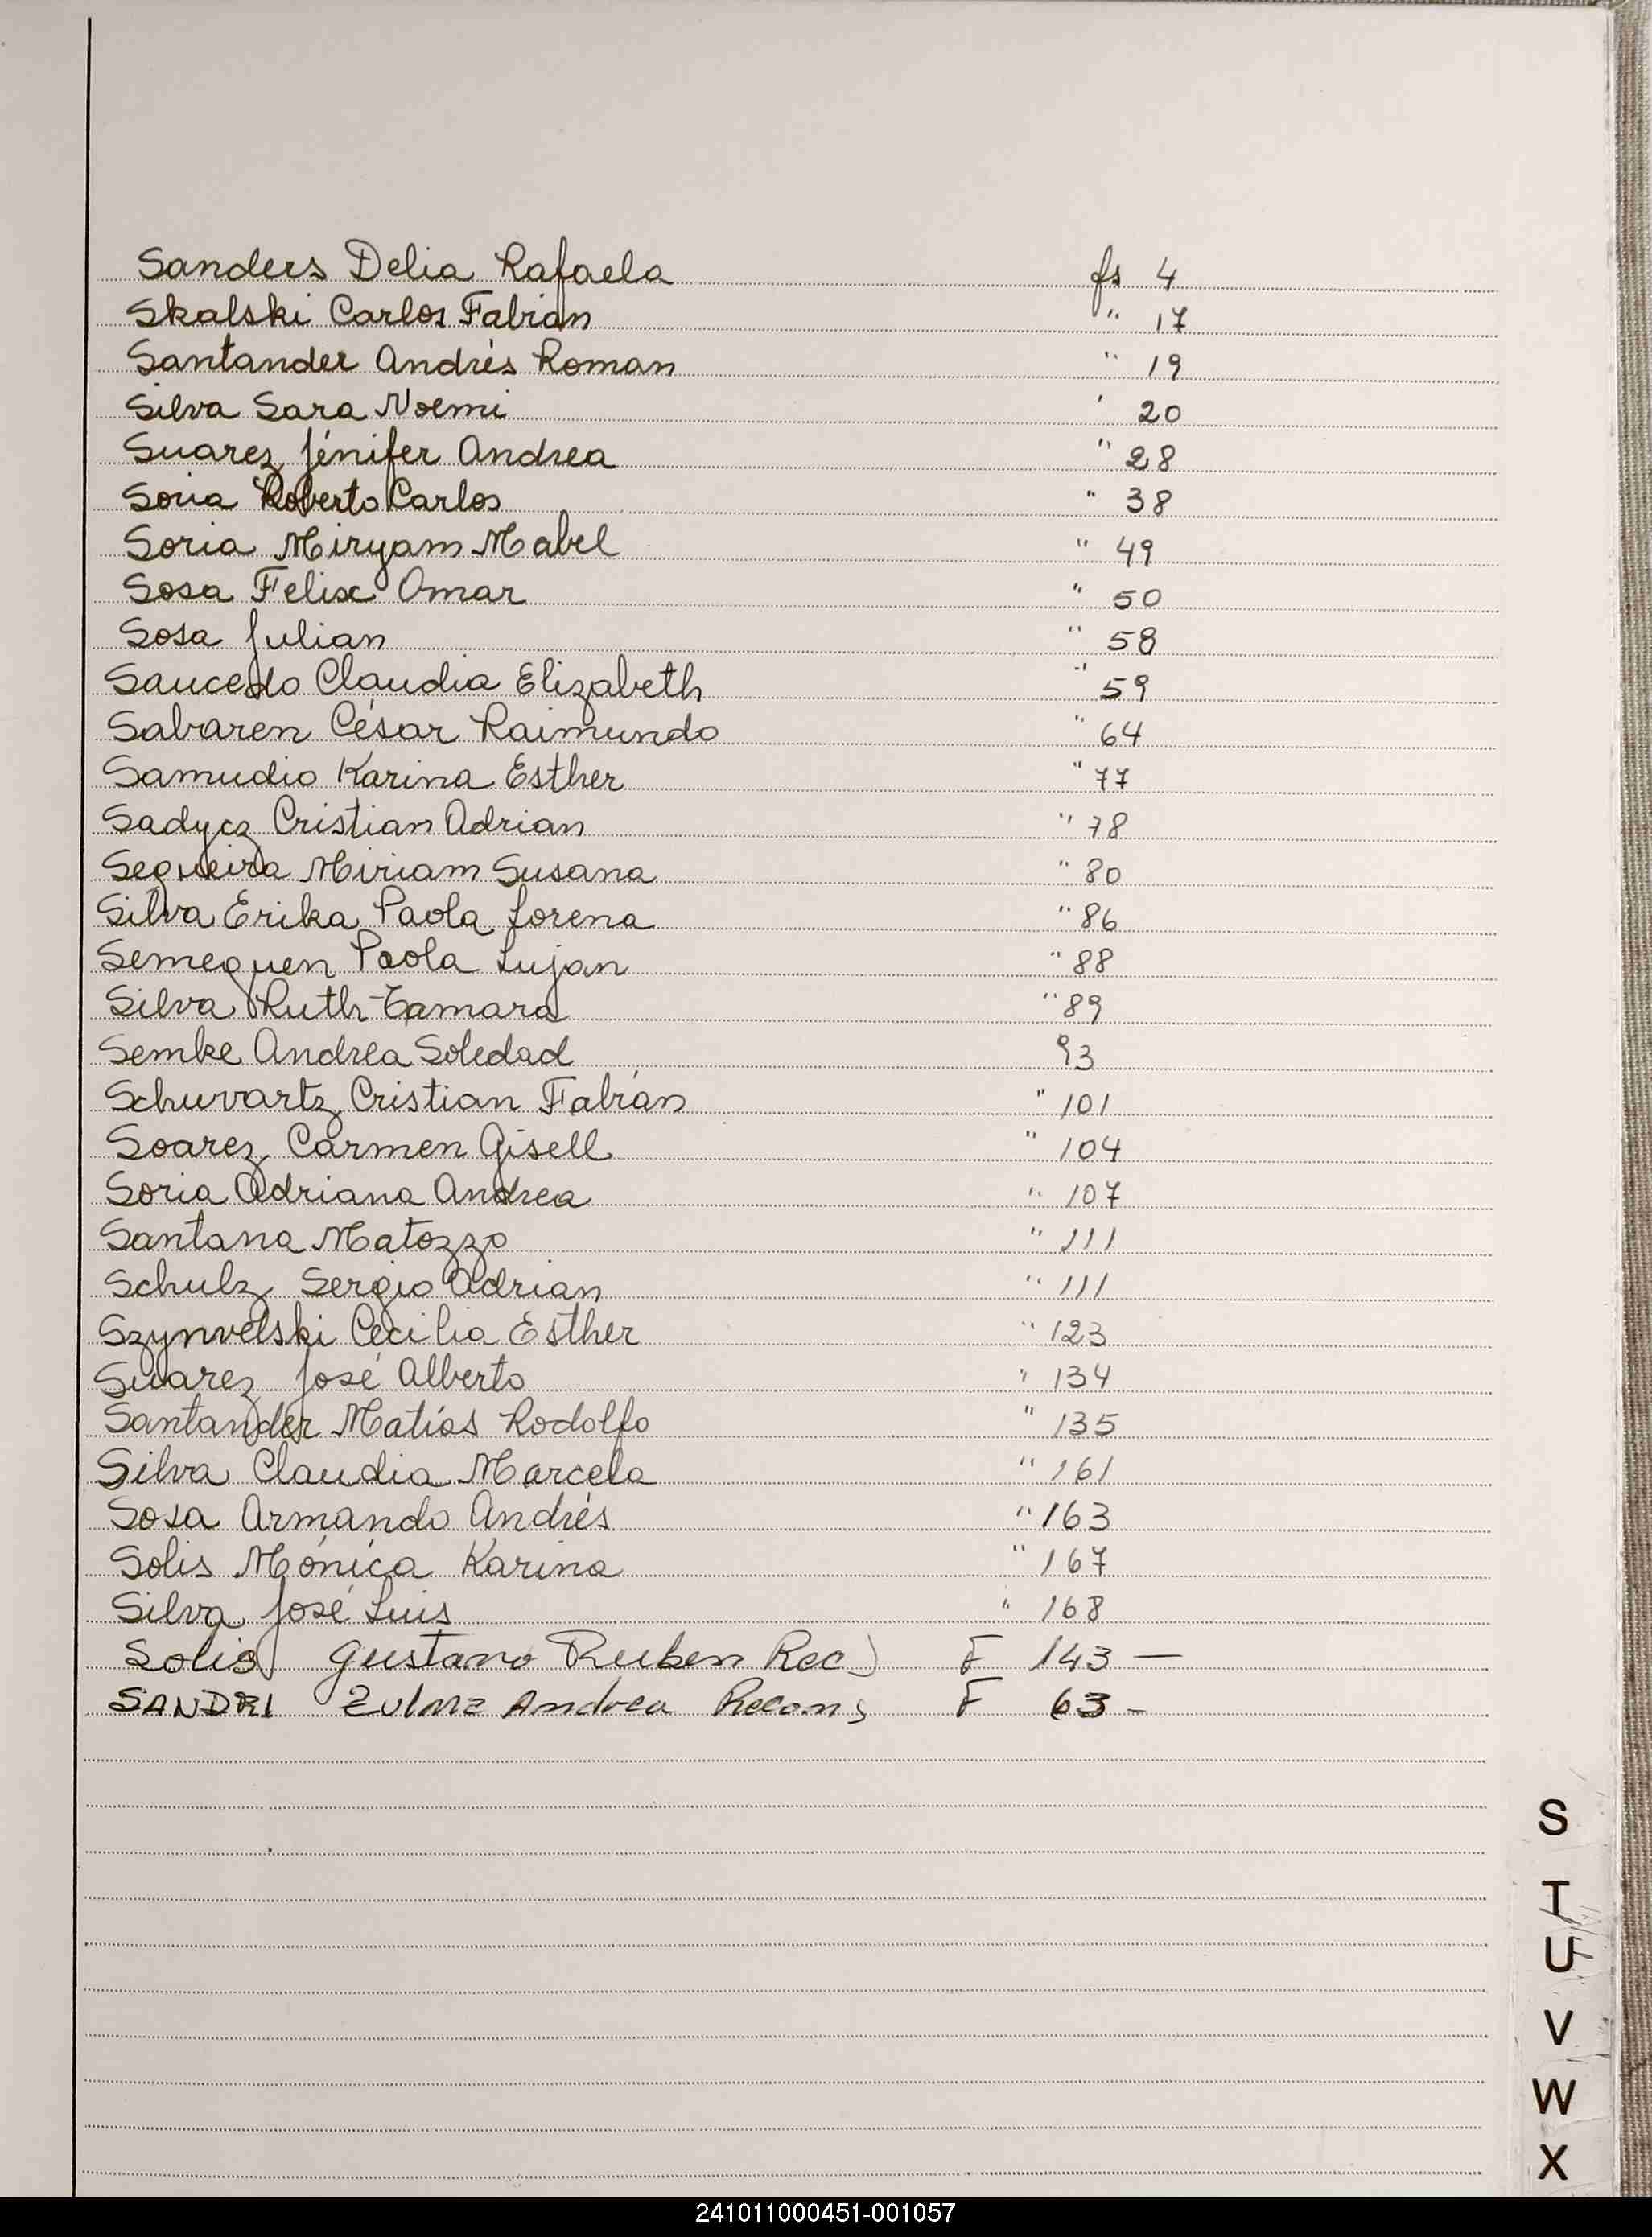 Sanders Delia Rafaela fs 4
Skalski Carlos Fabián " 17
Santander Andrés Roman " 19
Silva Sara Noemi ' 20
Suarez Jénifer Andrea " 28
Soria Roberto Carlos " 38
Soria Miryam Mabel " 49
Sosa Felix Omar " 50
Sosa Julian " 58
Saucedo Claudia Elizabeth " 59
Sabaren César Raimundo " 64
Samudio Karina Esther " 77
Sadycz Cristian Adrian " 78
Segueira Miriam Susana " 80
Silva Erika Paola Lorena " 86
Semeguen Paola Lujan " 88
Silva Ruth Tamara " 89
Semke Andrea Soledad 93
Schuvartz Cristian Fabián " 101
Soarez Carmen Gisell " 104
Soria Adriana Andrea " 107
Santana Matozzo " 111
Schulz Sergio Adrian " 111
Szynvelski Cecilia Esther " 123
Suarez José Alberto " 134
Santander Matías Rodolfo " 135
Silva Claudia Marcela " 161
Sosa Armando Andrés " 163
Solis Mónica Karina " 167
Silva José Luis " 168
Solis Gustavo Ruben Rec) F 143 —
SANDRI Zulma Andrea Recons F 63 -
S
T
U
V
W
X
241011000451-001057